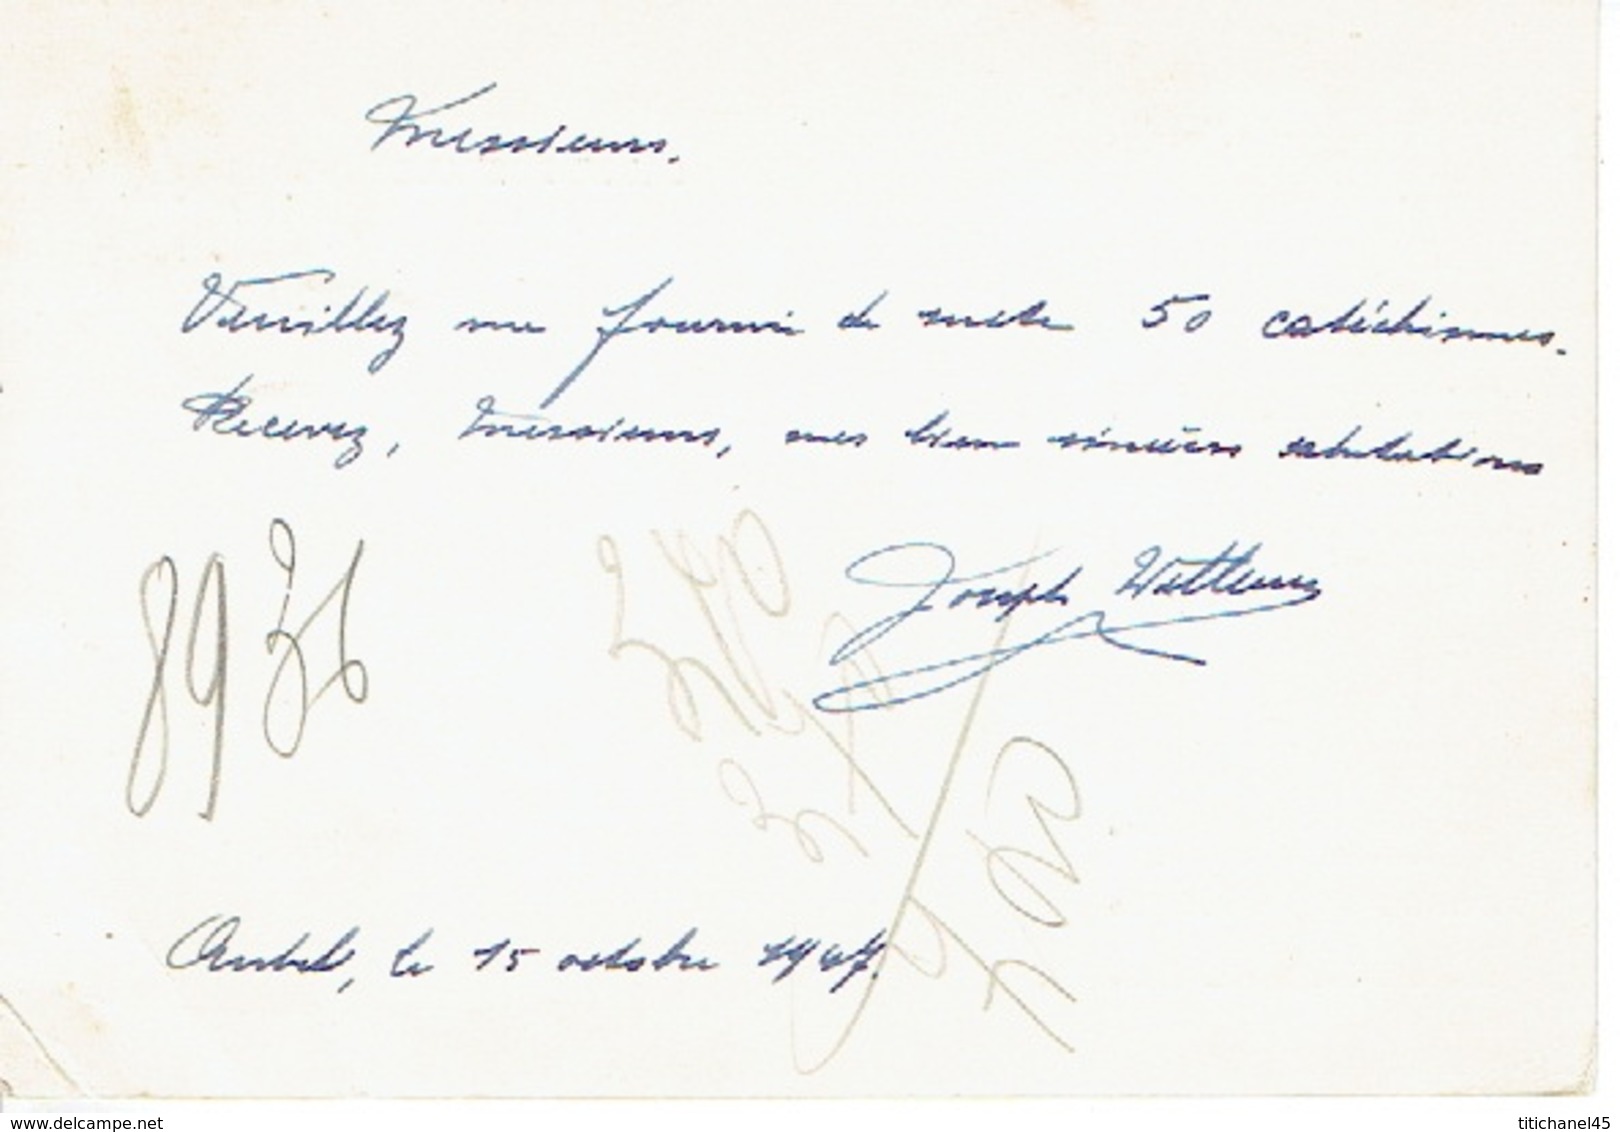 Messieurs.
Veuillez me fournir de suite 50 catéchismes.
Recevez, Messieurs, mes bien sincères salutations
Joseph
89 36
Aubel, le 15 octobre 1947.
www.delcampe.net
titichanel45